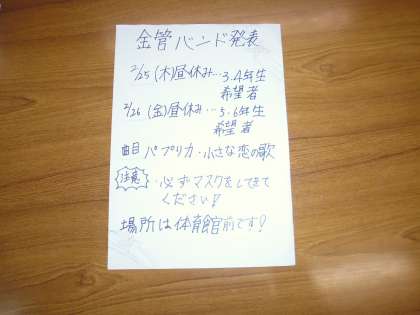 金管バンド発表
2/25(木)昼休み…3.4年生
希望者
2/26(金)昼休み…5.6年生
希望者
曲目 パプリカ・小さな恋の歌
注意 ・必ずマスクをしてきて
ください!
場所は体育館前です!